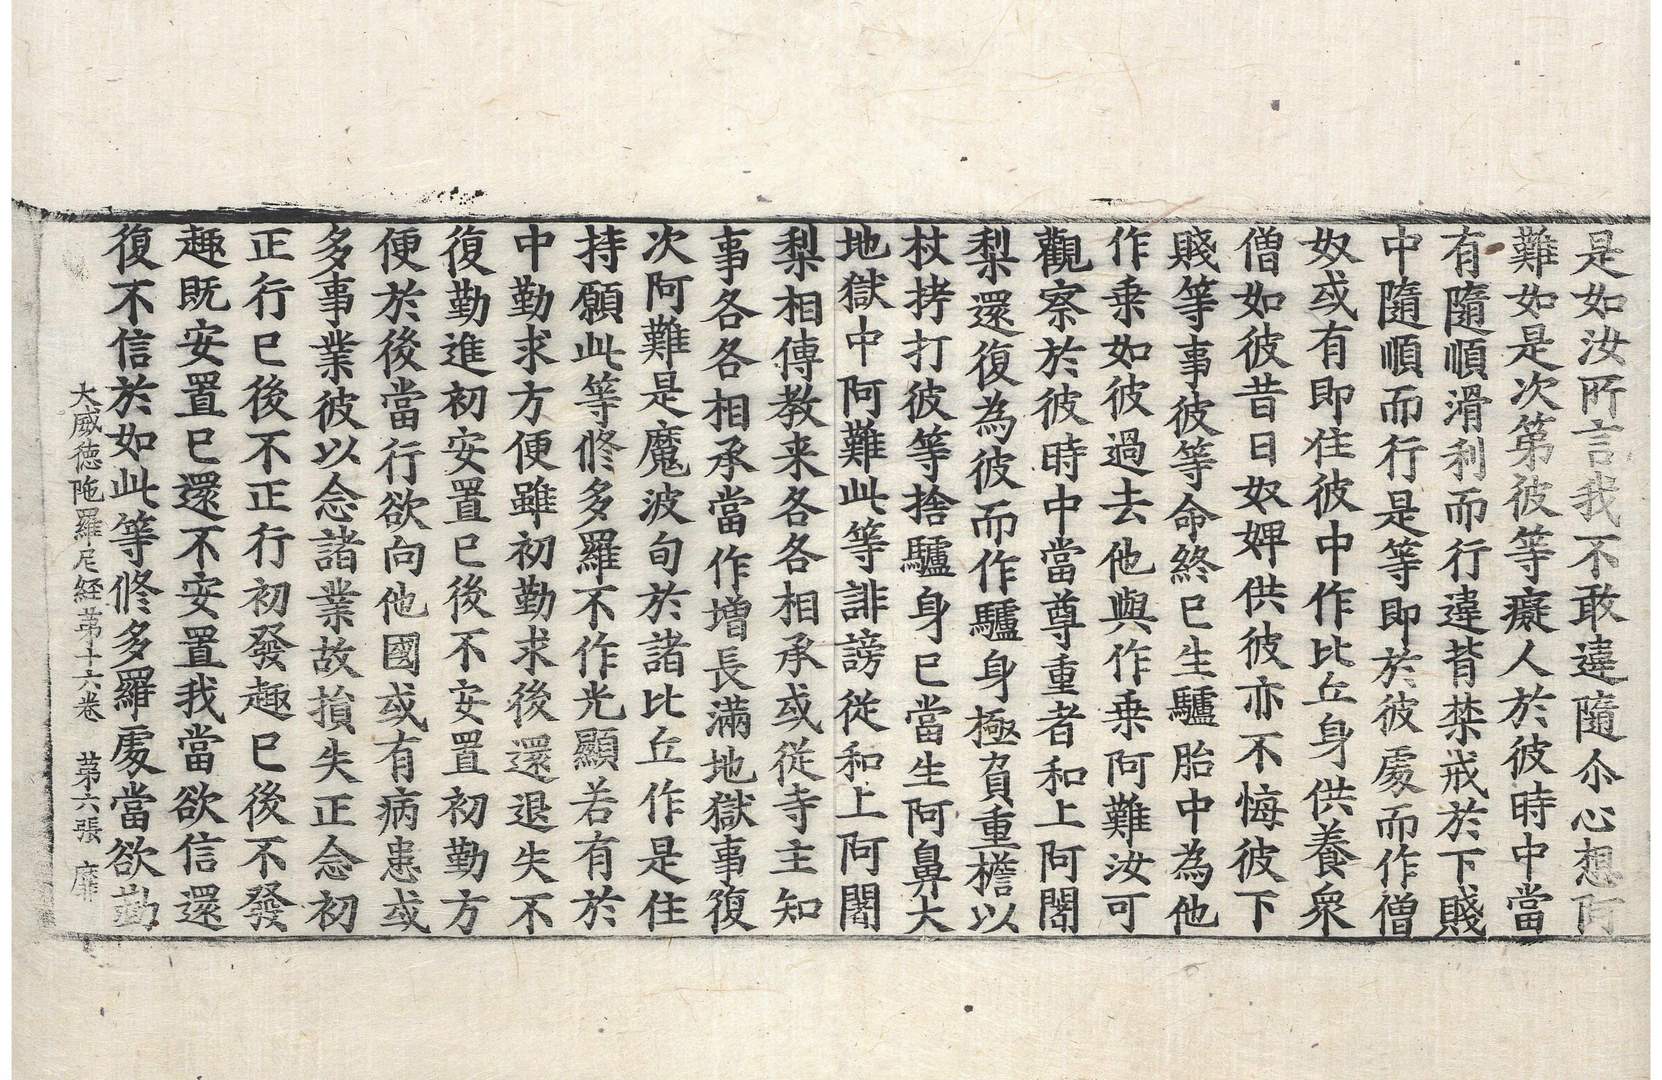 是如汝所言我不敢違隨尒心想阿
難如是次第彼等癡人於彼時中當
有隨順滑利而行違背禁戒於下賤
中隨順而行是等即於彼處而作僧
奴或有即住彼中作比丘身供養衆
僧如彼昔日奴婢供彼亦不悔彼下
賤等事彼等命終已生驢胎中為他
作乗如彼過去他與作乗阿難汝可
觀察於彼時中當尊重者和上阿闍
梨還復為彼而作驢身極負重檐以
杖拷打彼等捨驢身已當生阿鼻大
地獄中阿難此等誹謗從和上阿闍
梨相傳教来各各相承或從寺主知
事各各相承當作增長滿地獄事復
次阿難是魔波旬於諸比丘作是住
持願此等修多羅不作光顯若有於
中勤求方便雖初勤求後還退失不
復勤進初安置已後不安置初勤方
便於後當行欲向他國或有病患或
多事業彼以念諸業故損失正念初
正行已後不正行初發趣已後不發
趣既安置已還不安置我當欲信還
復不信於如此等修多羅處當欲勤
大威德陁羅尼経苐十六卷 苐六張 靡